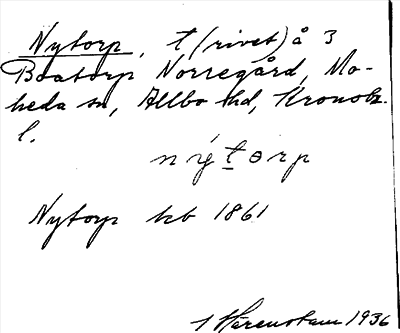 Nytorp, t (rivet) å 3
Boatorp Norregård, Mo-
heda sn, Allbo hd, Kronob.
l.
nýtorp
Nytorp hb 1861
Härenstam 1936